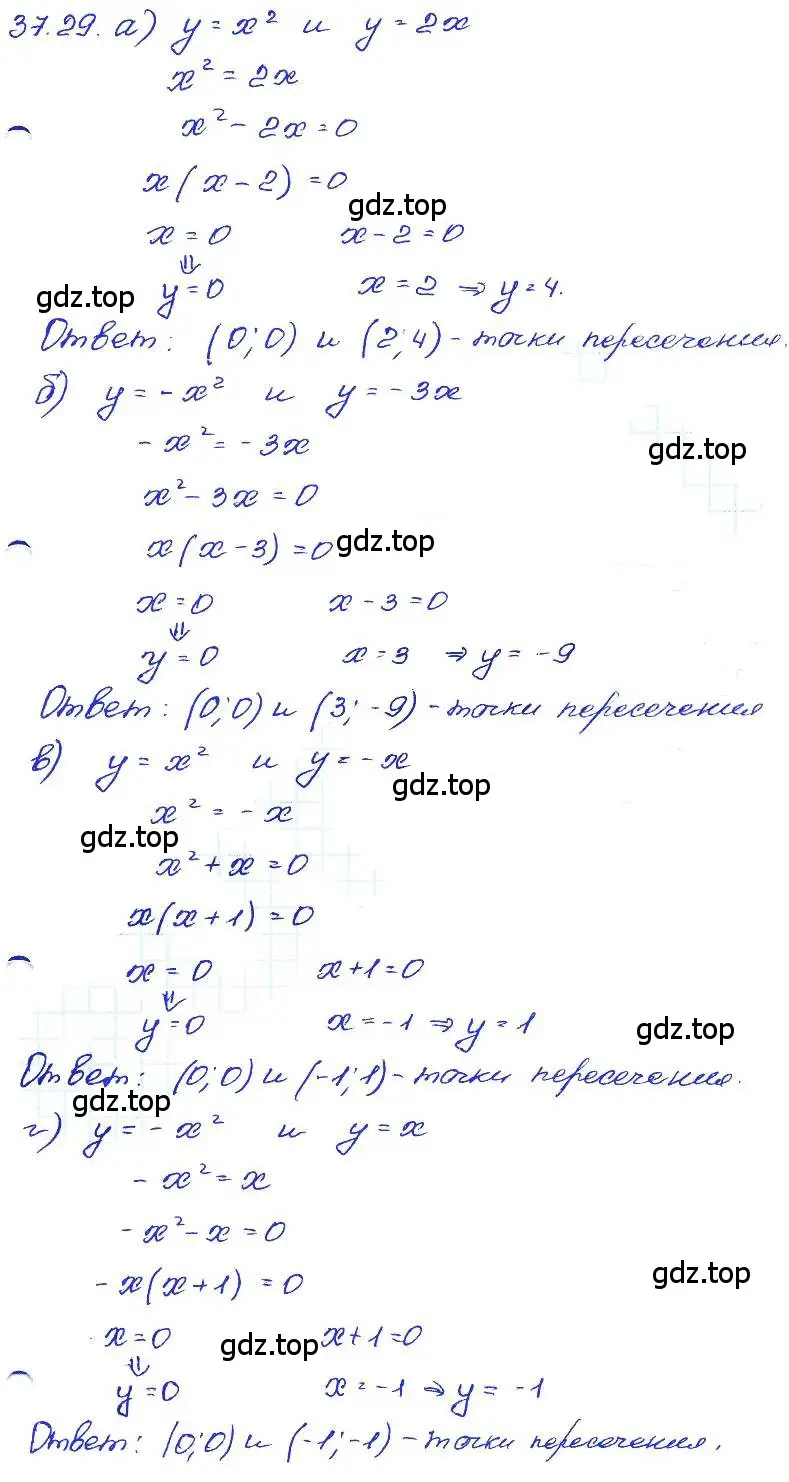 37.29. а) y = x² и y = 2x
x² = 2x
x² - 2x = 0
x(x - 2) = 0
gdz.top
x = 0 x - 2 = 0
⇓
gdz.top y = 0 x = 2 ⇒ y = 4.
Ответ: (0;0) и (2;4) - точки пересечения.
б) y = -x² и y = -3x
-x² = -3x
gdz.top
x² - 3x = 0
x(x - 3) = 0 gdz.top
x = 0 x - 3 = 0
⇓
y = 0 x = 3 ⇒ y = -9
Ответ: (0;0) и (3; -9) - точки пересечения
в) y = x² и y = -x
gdz.top
x² = -x
gdz.top
x² + x = 0
x(x + 1) = 0
x = 0 x + 1 = 0
⇓
y = 0 x = -1 ⇒ y = 1 gdz.top
Ответ: (0;0) и (-1;1) - точки пересечения.
gdz.top
г) y = -x² и y = x
-x² = x
-x² - x = 0
-x(x + 1) = 0 gdz.top
x = 0 gdz.top x + 1 = 0
⇓
y = 0 x = -1 ⇒ y = -1
Ответ: (0;0) и (-1;-1) - точки пересечения.